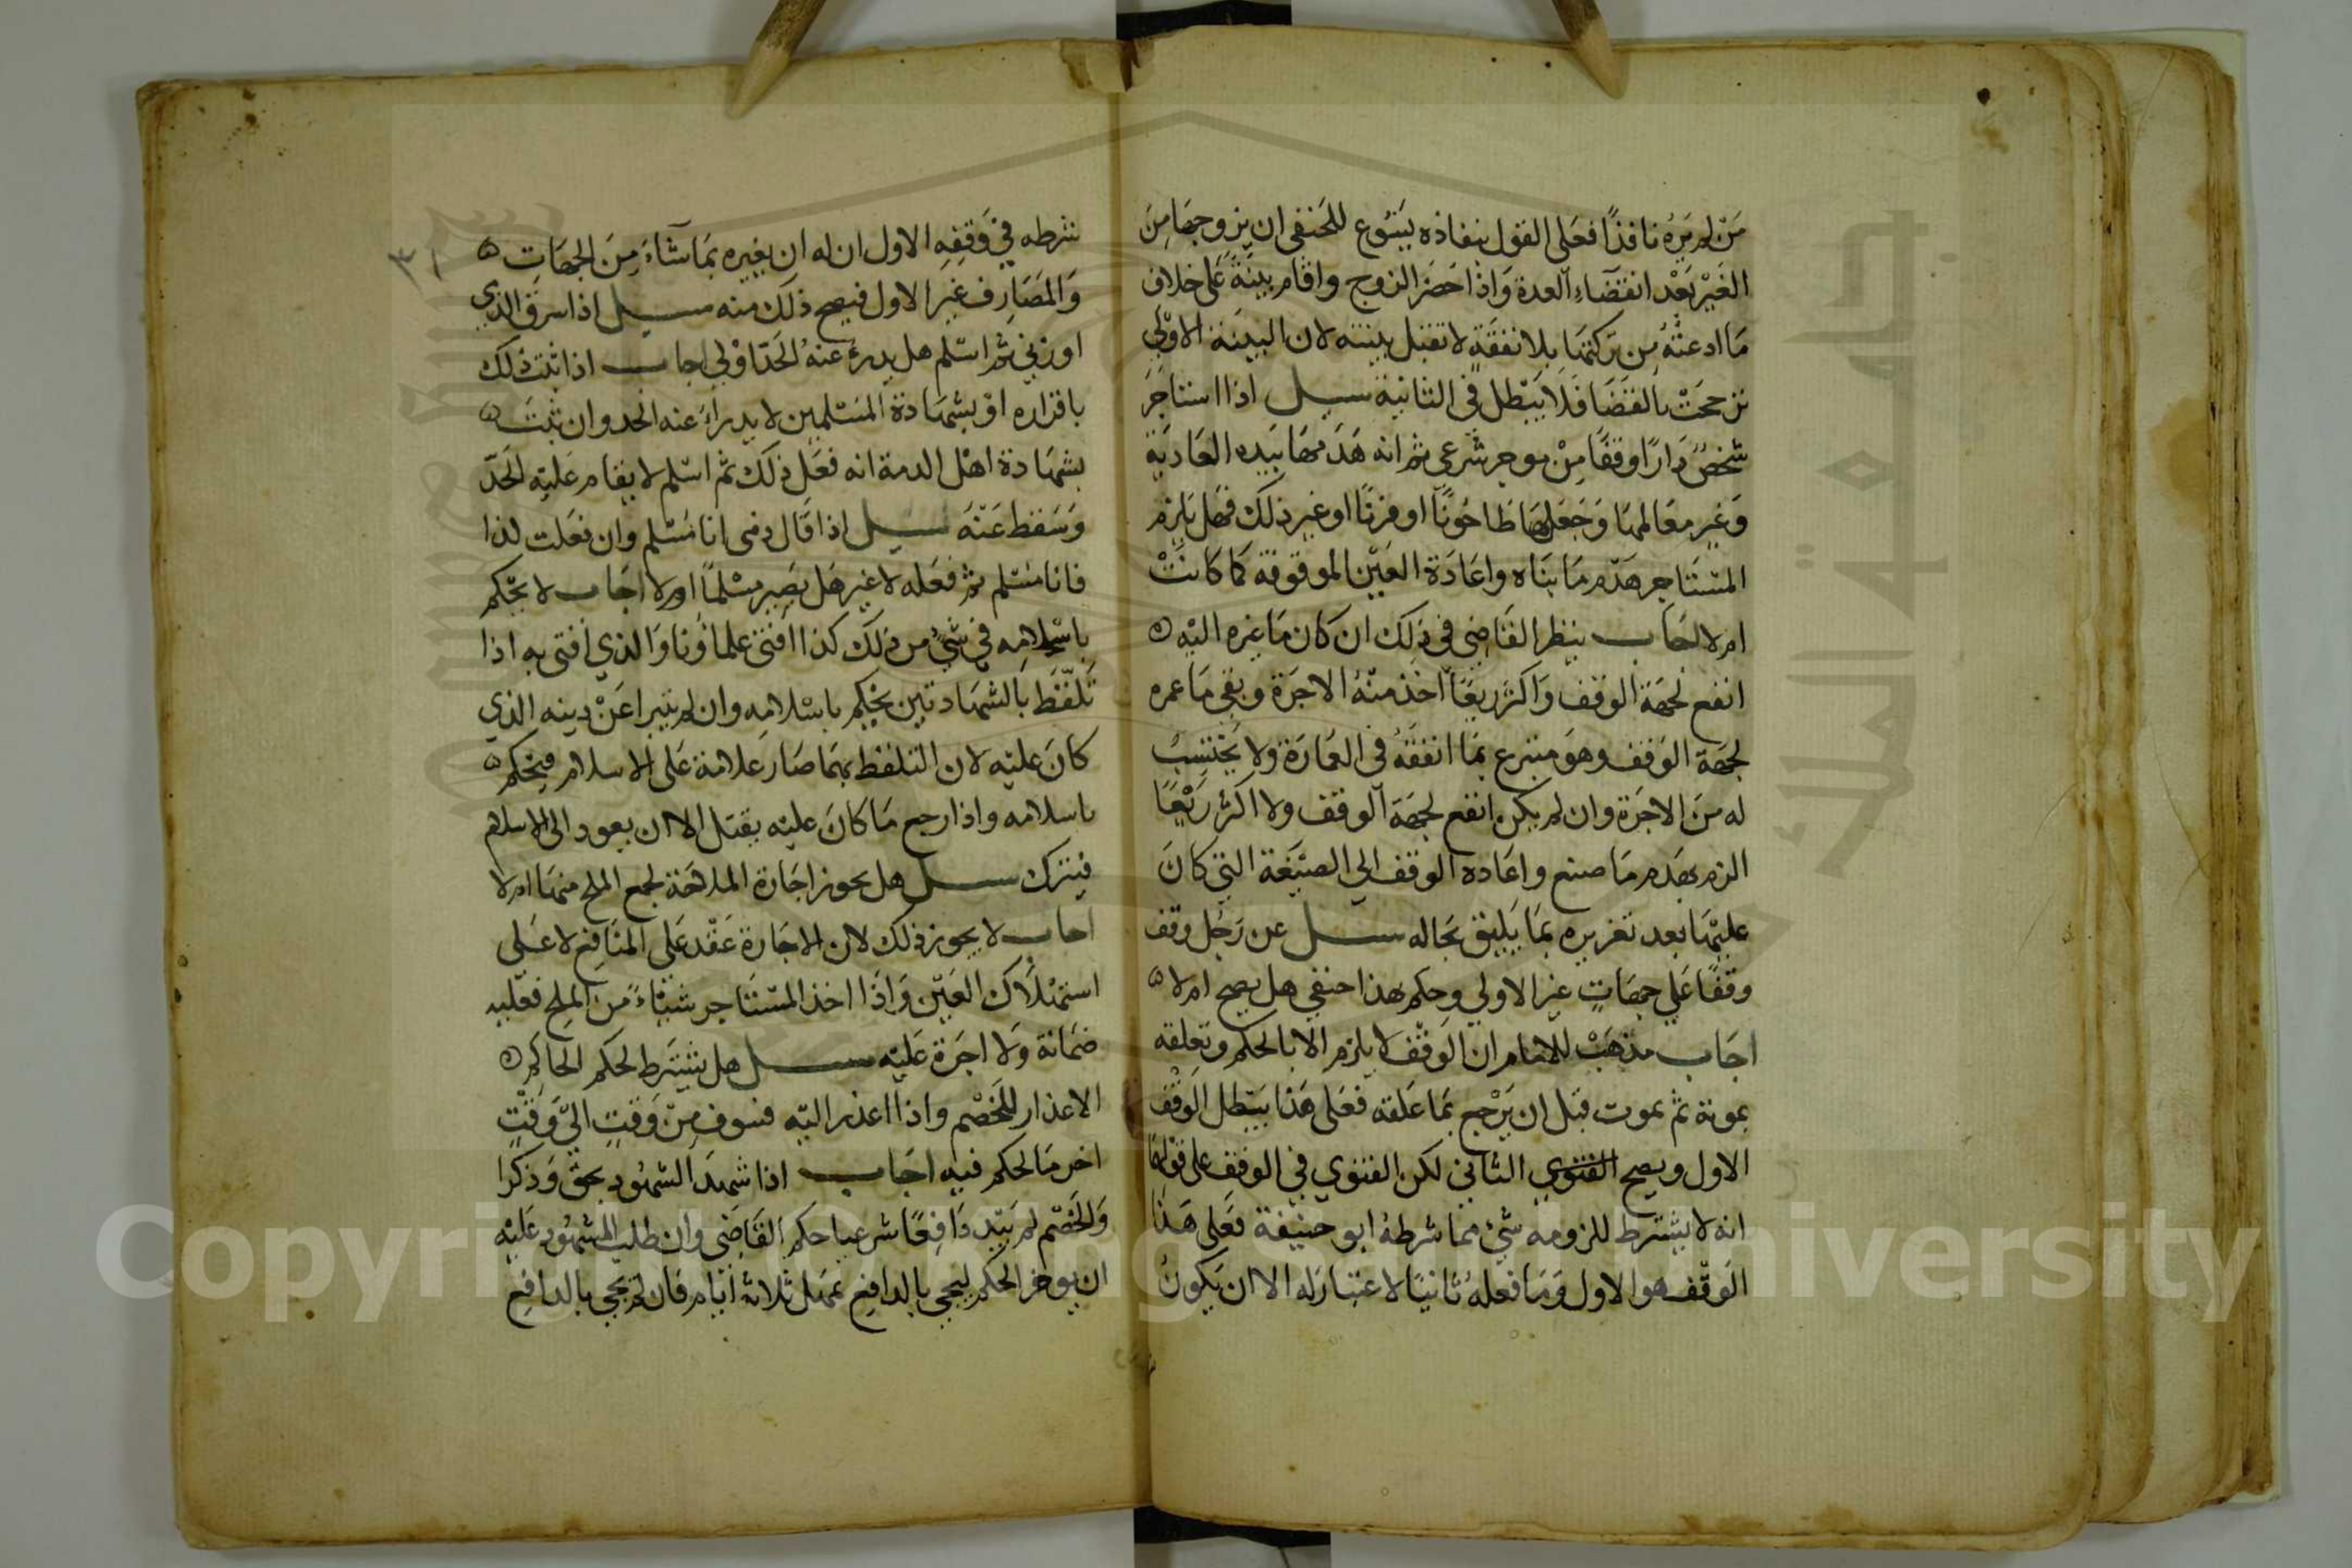 من لم يره نافذا فعلى القول بنفاذه يسوغ للحنفي ان يزوجها من
الغير بعد انقضاء العدة واذا حضر الزوج واقام بينة على خلاف
ما ادعته من تركتها بلا نفقة لا تقبل بينته لان البينة الاولى
ترجحت بالقضا فلا يبطل في الثانية سيل اذا استاجر
شخص دارا وقفا من موجر شرعي ثم انه هدمها بيده العادية
وغير معالمها وجعلها طاحونا او فرنا او غير ذلك فهل يلزم
المستاجر هدم ما بناه واعادة العين الموقوفة كما كانت
ام لا اجاب ينظر القاضي في ذلك ان كان ما غيره اليه
انفع لجهة الوقف واكثر ريعا اخذ منه الاجرة وبقي ما عمره
لجهة الوقف وهو متبرع بما انفقه في العمارة ولا يحتسب
له من الاجرة وان لم يكن انفع لجهة الوقف ولا اكثر ريعا
الزم بهدم ما صنع واعاده الوقف الي الصيغة التي كان
عليها بعد تعزيره بما يليق بحاله سيل عن رجل وقف
وقفا علي جهات غير الاولي وحكم بهذا حنفي هل يصح ام لا
اجاب مذهب الامام ان الوقف لا يلزم الا بالحكم وتعلقه
بموته ثم يموت قبل ان يرجع بما علقه فعلى هذا يبطل الوقف
الاول ويصح الفتوي الثاني لكن الفتوي في الوقف على قولهما
انه لا يشترط للزومه شيء مما شرطه ابو حنيفة فعلى هذا
الوقف هو الاول وما فعله ثانيا لا اعتبار له الا ان يكون
شرطه في وقفه الاول ان له ان يغيره بما شاء من الجهات
٣١
والمصارف غير الاول فيصح ذلك منه سيل اذا سرق الذمي
او زني ثم اسلم هل يدرء عنه الحد اولي اجاب اذا ثبت ذلك
باقراره او بشهادة المسلمين لا يدراء عنه الحد وان ثبت
بشهادة اهل الدمة انه فعل ذلك ثم اسلم لا يقام عليه الحد
وسقط عنه سيل اذا قال دمي انا مسلم وان فعلت كذا
فانا مسلم ثم فعله لا غير هل يصير مسلما او لا اجاب لا يحكم
باسلامه في شيء من ذلك كذا افتى علماؤنا والذي افتى به اذا
تلفظ بالشهادتين يحكم باسلامه وان لم يتبرا عن دينه الذي
كان عليه لان التلفظ بهما صار علامة على الاسلام فيحكم
باسلامه واذا رجع ما كان عليه يقتل الا ان يعود الى الاسلام
فيترك سيل هل يجوز اجارة الملاحة لجمع الملح منها ام لا
اجاب لا يجوز ذلك لان الاجارة عقد على المنافع لا على
استهلاك العين واذا اخذ المستاجر شيئاء من الملح فعليه
ضمانة ولا اجرة عليه سيل هل يشترط لحكم الحاكم
الاعذار للخصم واذا اعذر اليه فسوف من وقت الي وقت
اخر ما لحكم فيه اجاب اذا شهد الشهود بحق وذكرا
والخصم لم يبد دافعا شرعيا حكم القاضي وان طلب المشهود عليه
ان يوخر الحكم ليجي بالدافع يمهل ثلاثة ايام فان لم يجي بالدافع
Copyright © King Saud University